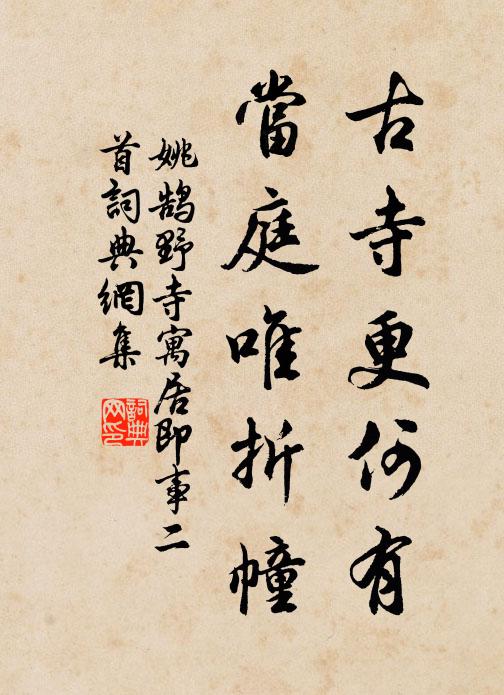 古寺更何有
當庭唯折幢
姚鵠野寺寓居即事二
首詞典網集
詞典
网印